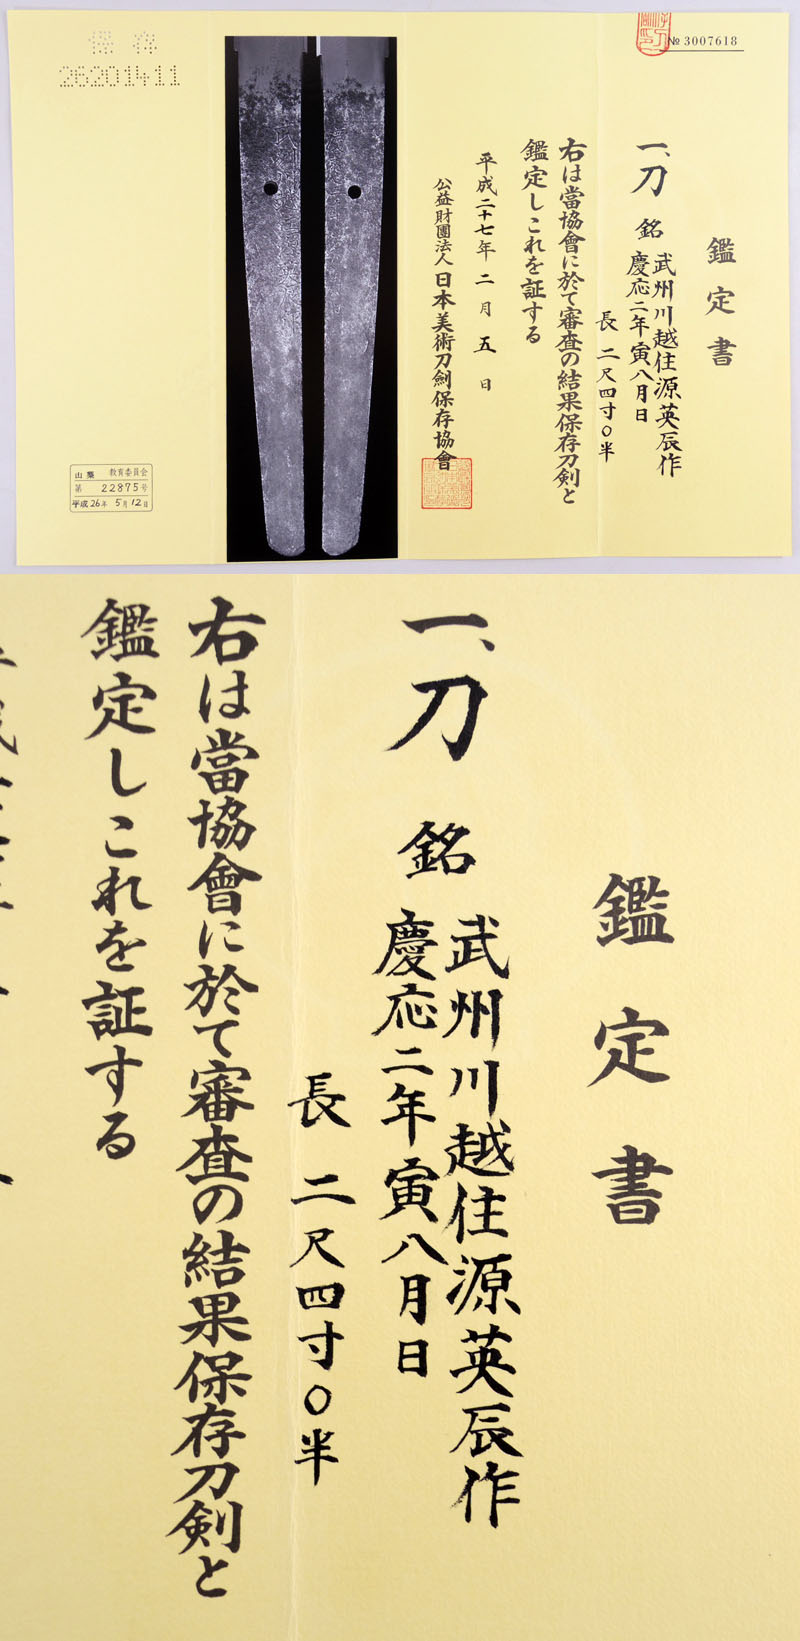 № 3007618
鑑定書
一、刀 銘 武州川越住源英辰作
慶応二年寅八月日
長 二尺四寸〇半
右は當協會に於て審査の結果保存刀剣と
鑑定しこれを証する
平成二十七年 二月 五日
公益財團法人 日本美術刀劍保存協會
保存
26201411
山梨 教育委員会
第 22875号
平成26年 5月12日
鑑定書
一、刀 銘 武州川越住源英辰作
慶応二年寅八月日
長 二尺四寸〇半
右は當協會に於て審査の結果保存刀剣と
鑑定しこれを証する